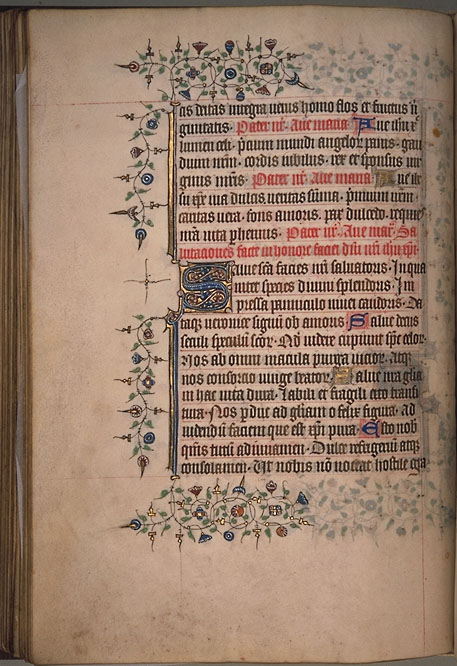 as deitas integra uerus homo flos et fructus ũ
ginitatis. Pater nr̃. Aue maria. Aue ihũ xp̃e
lumen celi. p̃cium mundi angelor panis. gau
dium nr̃m. cordis iubilus. rex et sponsus uir
ginis mr̃is. Pater nr̃. Aue maria. Aue ih̃u
xp̃e uia dulcis. ueritas sũma. p̃mium nr̃m.
caritas uera. fons amoris. pax dulcedo. requies
nr̃a uita p̃hennis. Pater nr̃. Aue mar̃. Sa
lutaciones facte in honore faciei dñi nr̃i ih̃u xp̃i.
Salue sc̃a facies nr̃i saluatoris. In qua
nitet species diuini splendoris. Im
pressa panniculo niuei candoris. Da
taqꝫ ueronice signũ ob amoris. Salue decus
seculi speculũ sc̃or. Qd̃ uidere cupiunt sp̃c celor.
Nos ab omni macula purga uicior. Atqꝫ
nos consorcio iunge beator. Salue nr̃a glia
in hac uita dura. Labili et fragili cito transi
tura. Nos p̃duc ad gliam o felix figura. ad
uidendũ faciem que est xp̃i pura. Esto nob
quis tutũ adiuuamen. Dulce refugeriũ atqꝫ
consolamen. Ut nobis nõ noceat hostile